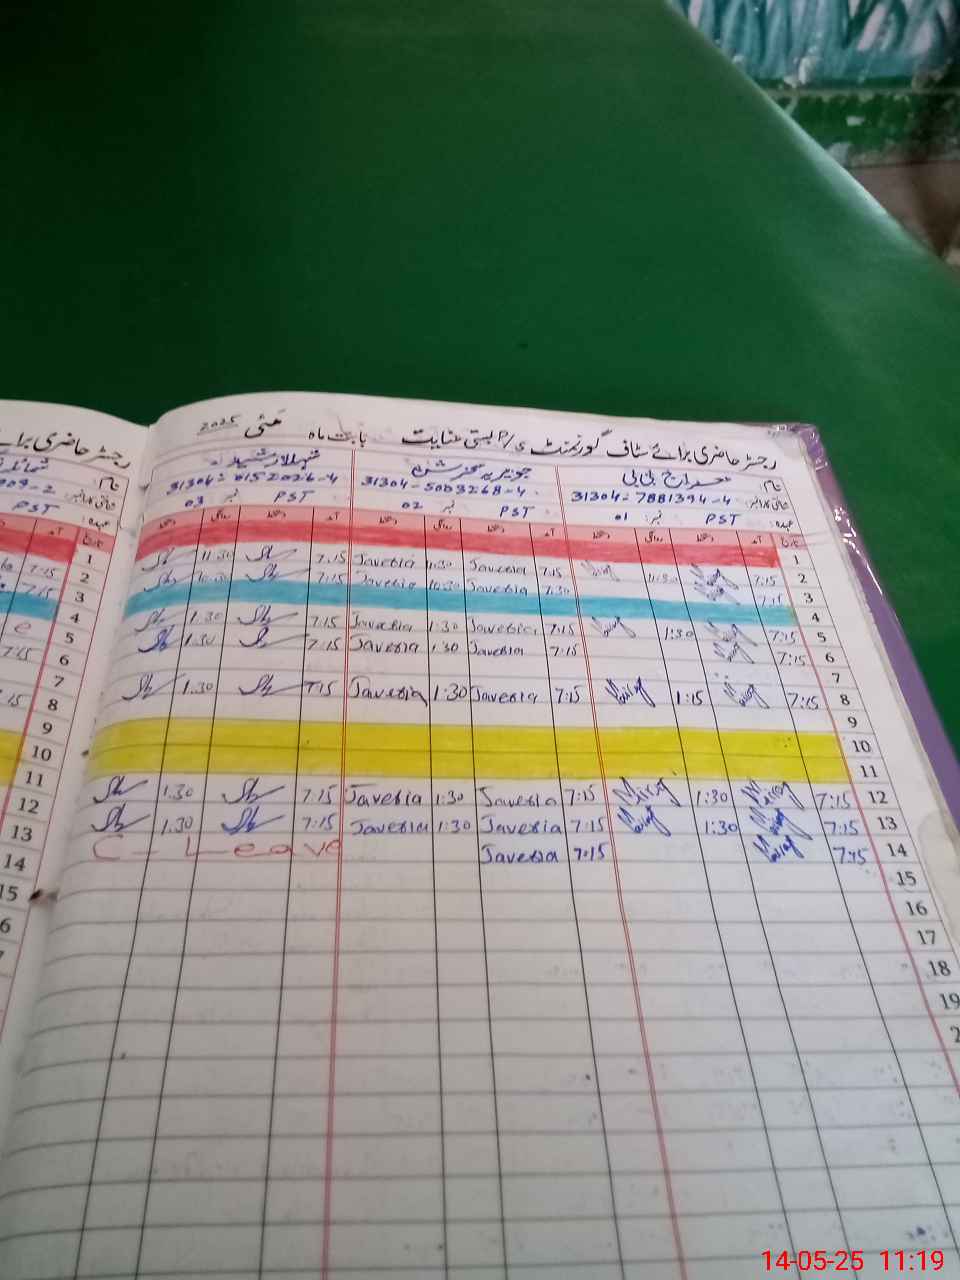 رجسٹر حاضری برائے سٹاف گورنمنٹ P/S بستی عنایت بابت ماہ مَئی 2025
نام: معراج بی بی
شناختی کارڈ نمبر: 31304-7881394-4 31304-5003268-4 31304-0152026-4
عہدہ: PST نمبر 01 PST نمبر 02 PST نمبر 03
تاریخ آمد دستخط روانگی دستخط آمد دستخط روانگی دستخط آمد دستخط روانگی دستخط
1
2 7:15 11:30 7:15 Javeria 11:30 Javeria 7.15 11.30
3 7:15 11:30 Javeria Javeria 7:15
4
5 7:15 1:30 7:15 Javeria 1:30 Javeria 7:15 1.30
6 7:15 7:15 Javeria 1:30 Javeria 7:15 1.30
7
8 7:15 1:15 7:15 Javeria 1:30 Javeria 7:15 1.30
9
10
11
12 7:15 1:30 7:15 Javeria 1:30 Javeria 7:15 1.30
13 7:15 1:30 7:15 Javeria 1:30 Javeria 7:15 1.30
14 7:15 7:15 Javeria C-Leave
15
16
17
18
19
2
رجسٹر حاضری برائے
909-2
PST
آمد
7:15
7:15
e
7:15
14-05-25 11:19